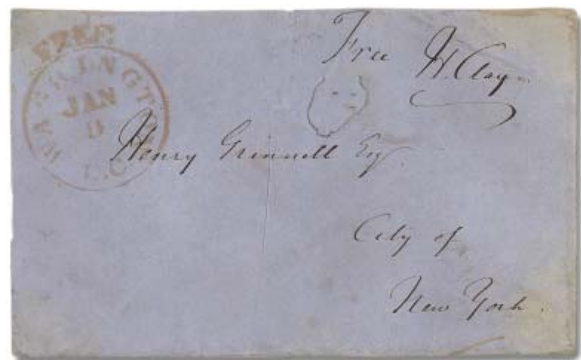 FREE
WASHINGTON
JAN
8
D.C.
Free H. Clay
Henry Grinnell Esq.
City of
New York.